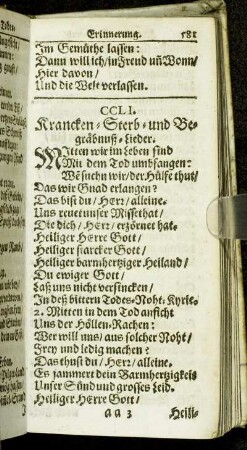 Erinnerung. 581
Im Gemüthe lassen:
Dann will ich/in Freud uñ Wonn/
Hier davon/
Und die Welt verlassen.
CCLI.
Krancken-Sterb-und Be-
gräbnuß-Lieder.
MItten wir im Leben sind
Mit dem Tod umbfangen:
Wē suchn wir/der Hülffe thut/
Das wir Gnad erlangen?
Das bist du/HErr/alleine.
Uns reuet unser Missethat/
Die dich/HErr/erzörnet hat.
Heiliger HErre Gott/
Heiliger starcker Gott/
Heiliger barmhertziger Heiland/
Du ewiger Gott/
Laß uns nicht versincken/
In deß bittern Todes-Noht: Kyrie.
2. Mitten in dem Tod anficht
Uns der Höllen-Rachen:
Wer will uns/aus solcher Noht/
Frey und ledig machen?
Das thust du/HErr/alleine.
Es jammert dein Barmhertzigkeit
Unser Sünd und grosses Leid.
Heiliger HErre Gott/
aa 3 Heili-